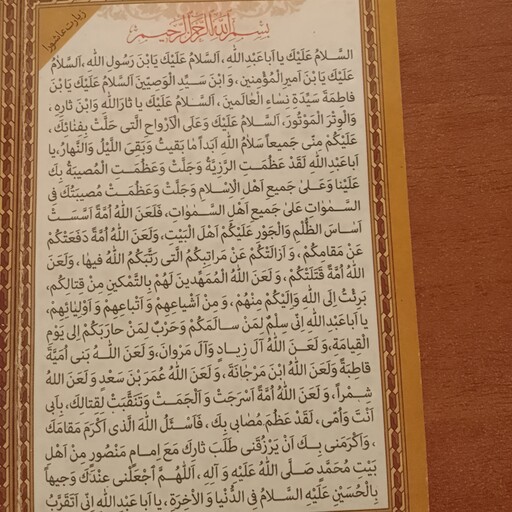 زیارت عاشورا
بِسْمِ اللّٰهِ الرَّحْمٰنِ الرَّحیٖمِ
اَلسَّلامُ عَلَیْکَ یا اَباعَبْدِاللّٰهِ، اَلسَّلامُ عَلَیْکَ یَابْنَ رَسُولِ اللّٰهِ، اَلسَّلامُ
عَلَیْکَ یَا بْنَ اَمیرِالْمُؤْمِنینَ، وَ ابْنَ سَیِّدِ الْوَصِیّینَ اَلسَّلامُ عَلَیْکَ یَابْنَ
فاطِمَةَ سَیِّدَةِ نِساءِ الْعالَمینَ، اَلسَّلامُ عَلَیْکَ یا ثارَاللّٰهِ وَابْنَ ثارِهِ،
وَالْوِتْرَ الْمَوْتُورَ، اَلسَّلامُ عَلَیْکَ وَعَلَی الْاَرْواحِ الَّتی حَلَّتْ بِفِنائِکَ،
عَلَیْکُمْ مِنّی جَمیعاً سَلامُ اللّٰهِ اَبَداً ما بَقیتُ وَبَقِیَ اللَّیْلُ وَالنَّهارُ، یا
اَباعَبْدِاللّٰهِ لَقَدْ عَظُمَتِ الرَّزِیَّةُ وَجَلَّتْ وَعَظُمَتِ الْمُصیبَةُ بِکَ
عَلَیْنا وَعَلیٰ جَمیعِ اَهْلِ الْاِسْلامِ وَجَلَّتْ وَعَظُمَتْ مُصیبَتُکَ فِی
السَّمٰواتِ عَلیٰ جَمیعِ اَهْلِ السَّمٰواتِ، فَلَعَنَ اللّٰهُ اُمَّةً اَسَّسَتْ
اَساسَ الظُّلْمِ وَالْجَوْرِ عَلَیْکُمْ اَهْلَ الْبَیْتِ، وَلَعَنَ اللّٰهُ اُمَّةً دَفَعَتْکُمْ
عَنْ مَقامِکُمْ، وَ اَزالَتْکُمْ عَنْ مَراتِبِکُمُ الَّتی رَتَّبَکُمُ اللّٰهُ فیها، وَلَعَنَ
اللّٰهُ اُمَّةً قَتَلَتْکُمْ، وَ لَعَنَ اللّٰهُ الْمُمَهِّدینَ لَهُمْ بِالتَّمْکینِ مِنْ قِتالِکُمْ،
بَرِئْتُ اِلَی اللّٰهِ وَاِلَیْکُمْ مِنْهُمْ، وَ مِنْ اَشْیاعِهِمْ وَ اَتْباعِهِمْ وَ اَوْلِیائِهِمْ،
یا اَباعَبْدِاللّٰهِ اِنّی سِلْمٌ لِمَنْ سالَمَکُمْ وَحَرْبٌ لِمَنْ حارَبَکُمْ اِلیٰ یَوْمِ
الْقِیامَةِ، وَ لَعَنَ اللّٰهُ آلَ زِیادٍ وَآلَ مَرْوانَ، وَ لَعَنَ اللّٰهُ بَنی اُمَیَّةَ
قاطِبَةً وَلَعَنَ اللّٰهُ ابْنَ مَرْجانَةَ، وَ لَعَنَ اللّٰهُ عُمَرَ بْنَ سَعْدٍ وَ لَعَنَ اللّٰهُ
شِمْراً، وَ لَعَنَ اللّٰهُ اُمَّةً اَسْرَجَتْ وَ اَلْجَمَتْ وَ تَنَقَّبَتْ لِقِتالِکَ، بِاَبی
اَنْتَ وَ اُمّی، لَقَدْ عَظُمَ مُصابی بِکَ، فَاَسْئَلُ اللّٰهَ الَّذی اَکْرَمَ مَقامَکَ
، وَاَکْرَمَنی بِکَ اَنْ یَرْزُقَنی طَلَبَ ثارِکَ مَعَ اِمامٍ مَنْصُورٍ مِنْ اَهْلِ
بَیْتِ مُحَمَّدٍ صَلَّی اللّٰهُ عَلَیْهِ وَ آلِهِ، اَللّٰهُمَّ اجْعَلْنی عِنْدَکَ وَجیهاً
بِالْحُسَیْنِ عَلَیْهِ السَّلامُ فِی الدُّنْیا وَ الْاٰخِرَةِ، یا اَبا عَبْدِاللّٰهِ اِنّی اَتَقَرَّبُ